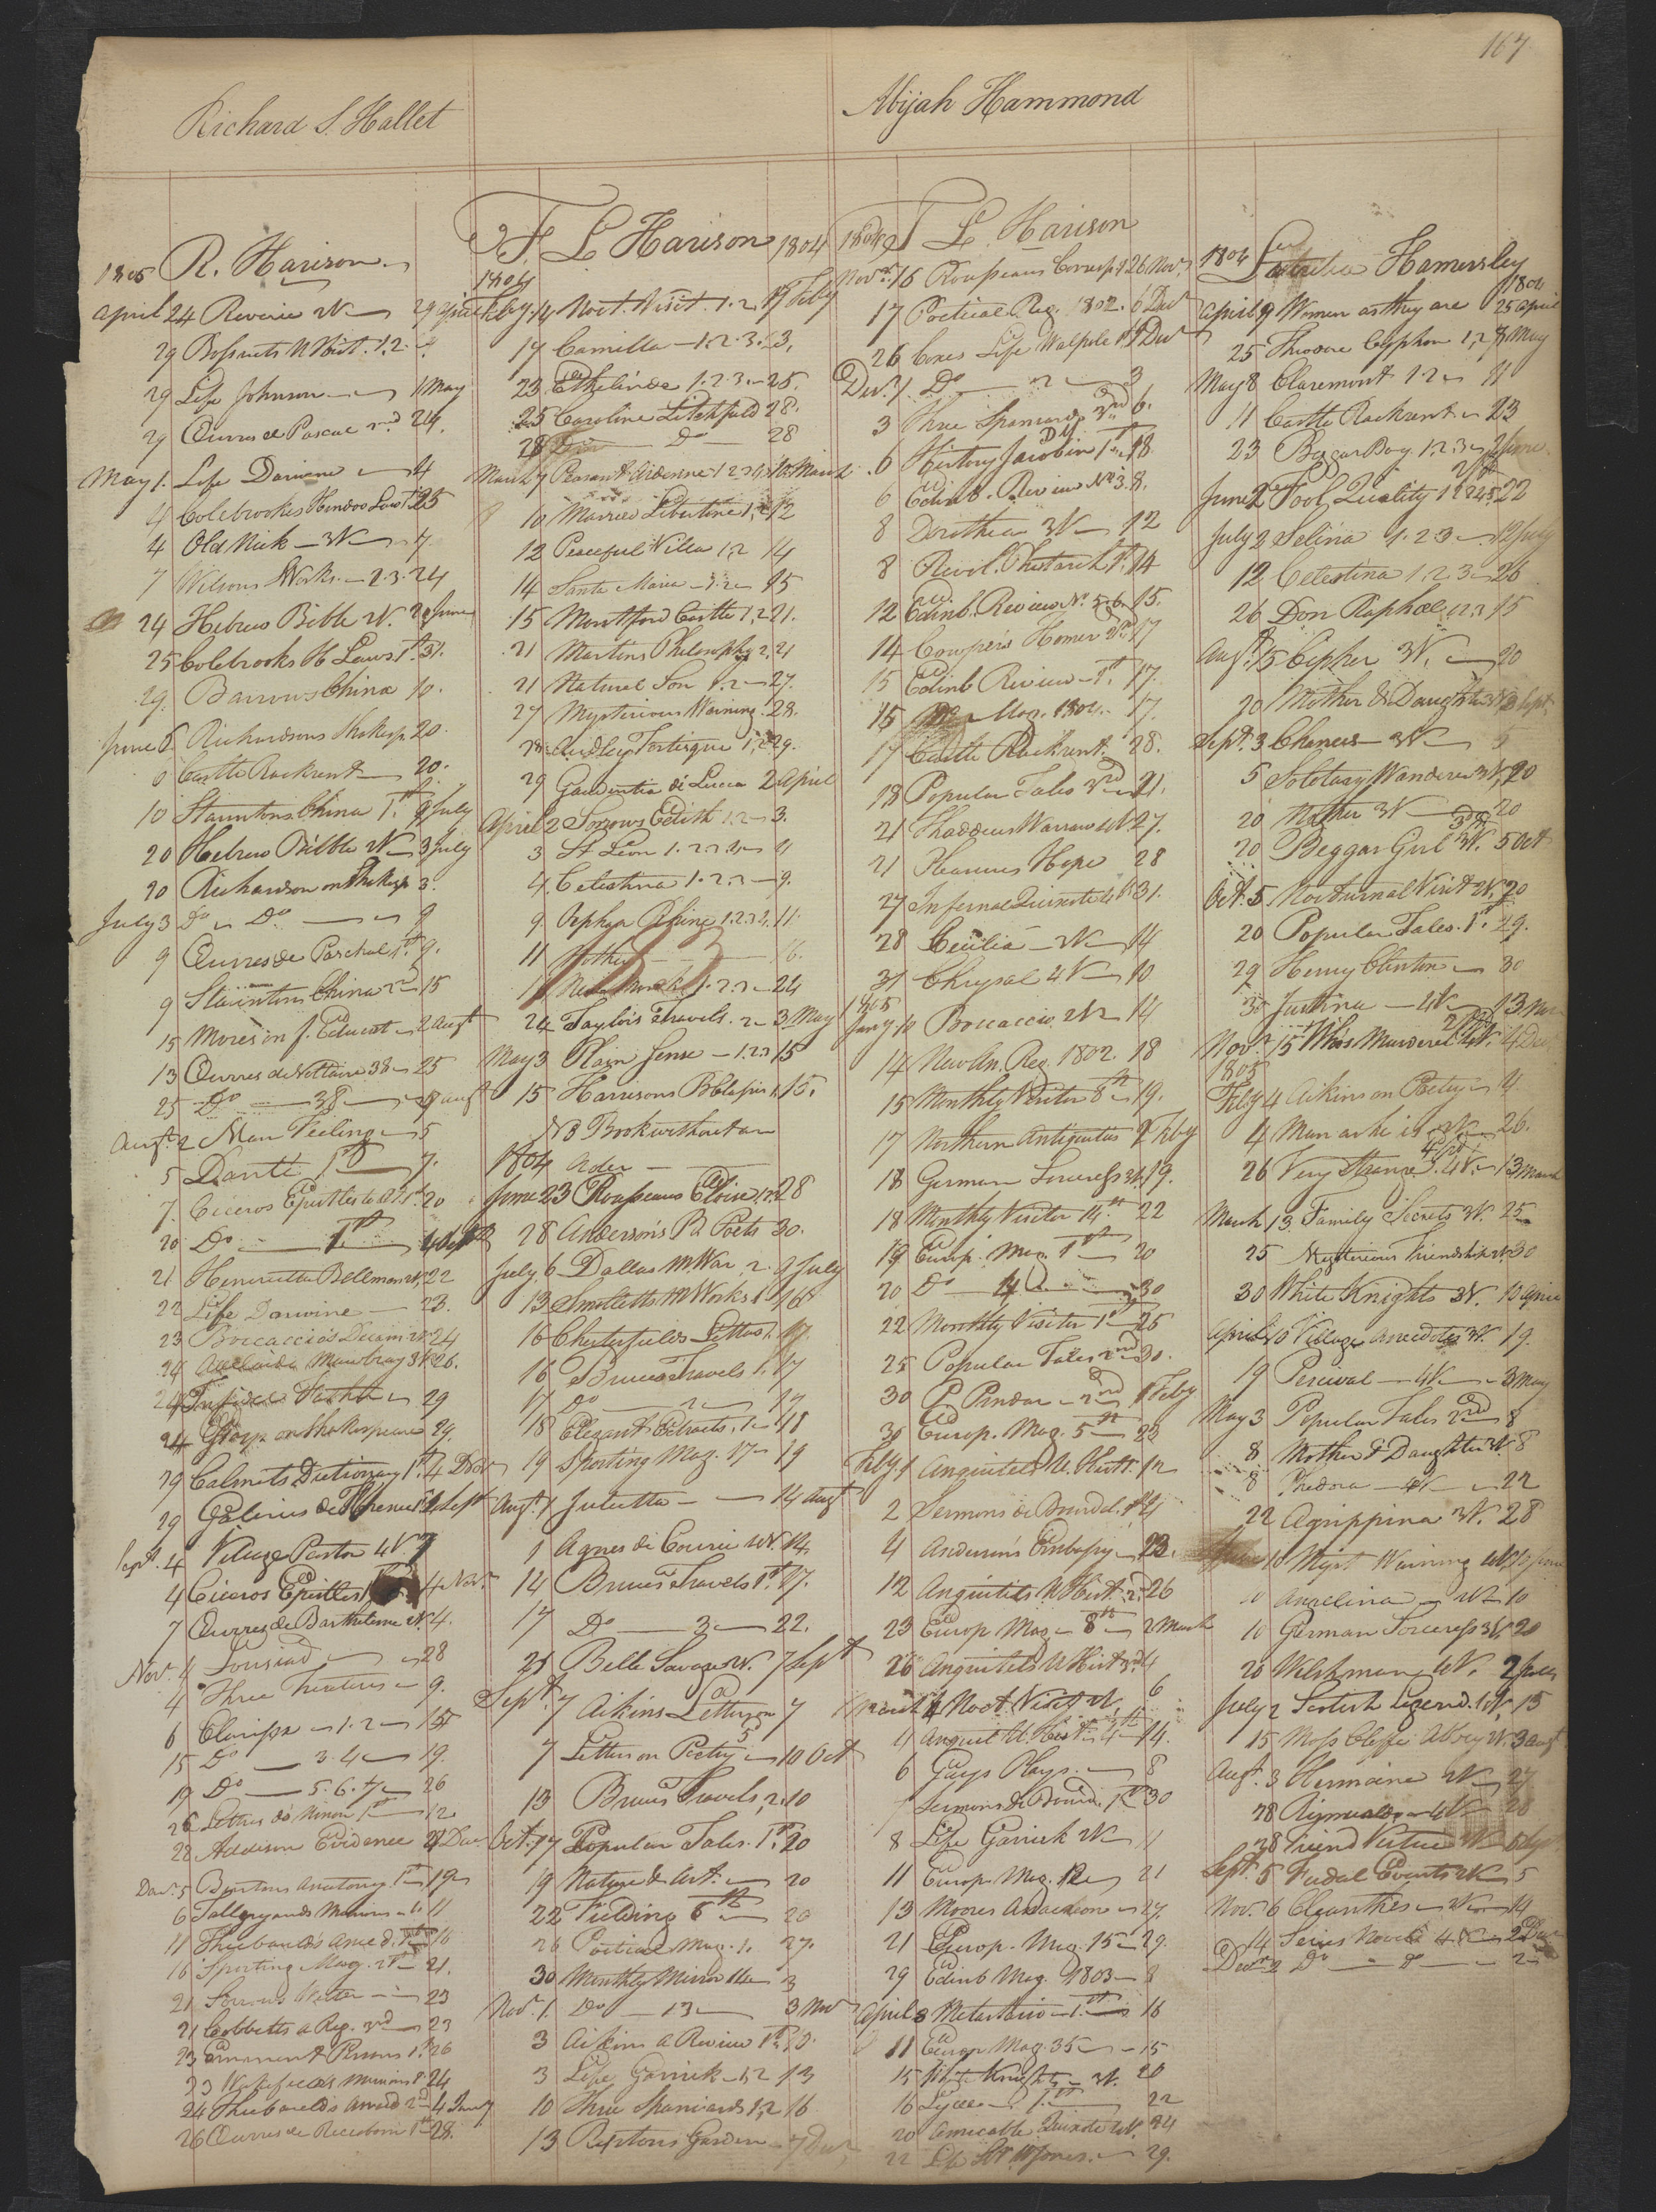 167
Richard S. Hallet
Abijah Hammond
R. Harison
1805
april 24 Reverie 2V 29 april
29 Bossuets U Hist. 1.2.
29 Life Johnson 1 May
29 Œuvres de Pascal 2nd 24.
May 1. Life Darwin 4
4 Colebrookes Hindoo Law 1st 25
4 Old Nick 3V 7
7 Wilsons Works. 2.3. 24
24 Hebrew Bible 2V. 20 June
25 Colebrooks H Laws 1st 31.
29. Barrows China 10.
June 6 Richardsons Shakesp. 20.
6 Castle Rackrent 20.
10 Stauntons China 1st 9 July
20 Hebrew Bible 2V 3 July
20 Richardson on Shakesp 3.
July 3 Do Do 9
9 Œuvres de Paschal 1st 9.
9 Stauntons China 2nd 15
15 Mores on f. Educat 2 Augt
13 Œuvres de Voltaire 38 25
25 Do 38 augt
Augt 2 Man Feeling 5
5 Dante 1st 7.
7. Ciceros Epistles to 1st 20
20 Do 1st 4 Sept
21 Henrietta Bellman 2V. 22
22 Life Darwine 23.
23 Boccaccio's Decam 2V 24
24 Adelaide Mawbray 3V 26.
29
24 on Shakespeare 29.
29 Calmets Dictionary 1st 4 Decr
29 Sept
Sept. 4 Village Pastor 4V. 7
4 Ciceros Epistles 4 Novr
7 Œuvres de Barthelemi 2V. 4.
Nov. 4 Lousiad 28
4 Three 9.
6 Clarissa 1.2 15
15 Do 3.4 19.
19 Do 5.6.7 26
26 Lettres de Ninon 1st 12
22 Addison Evidence Decr
Decr. 5 Burtons Anatomy 1st 19
6 Tallyrands Memoirs 1. 11
11 Thiebaulds Anecd. 16
16 Sporting Mag. 2nd 21.
21 Sorrows Werter 23
21 Cobbetts a Reg. 3rd 23
23 Eminent Persons 1. 26
23 Wakefields Memoirs 24
24 Thiebaulds Anecd 2nd 4 Jany
26 Œuvres de Racc 28.
F. L Harison 1804
1804
Feby. 14 Noct. Visit. 1.2. 17 Feby
17 Camilla 1.2.3. 23.
23 Ethelinde 1.2.3 25.
25 Caroline Litchfield 28.
28 Do 28
March 7 Peasant Ardenne 1.2.3. 10 March
10 Married Libertine 1.2 12
12 Peaceful Villa 1.2 14
14 Santa Maria 1.2 15
15 Montford Castle 1.2 21.
21 Martins Philosophy 2. 21
21 Natural Son 1.2 27.
27 Mysterious Warning 28.
28. Audley Fortesque 1.2 29.
29 Gaudentia di Lucca 2 April
April 2 Sorrows Edith 1.2 3.
3 St Leon 1.2.3.4 4
4 Celestina 1.2.3 9.
9 Orphan Rhine 1.2.3.4. 11.
11 Mother 16.
24
24 Taylors Travels. 2 3 May
May 3 Plain Sense 1.2.3 15
15 Harrisons 15.
No Book without an
1804 Order
June 23 Rousseaus Eloise 1.2. 28
28 Andersons B Poets 30.
July 6 Dallas M War 2. 9 July
13 Smolletts M Works 1 16
16 Chesterfields Letters 1. 17.
16 Bruces Travels 1. 17
17 Do 2 17
18 Elegant Extracts. 1. 18
19 Sporting Mag. 17 19
Augt. 1 Julietta 14 augt
1 Agnes di Courci 4V. 14
14 Bruces Travels 1st 17.
17 Do 3 22.
21 Belle Savage 2V. 7 Sept
Sept. 7 Aikins Letters on 7
7 Letters on Poetry 10 Oct
13 Bruces Travels, 2. 10
Oct. 17 Popular Tales. 1st. 20
19 Nature & Art 20
22 Fielding 6th 20
26 Poetical Mag. 1. 27.
30 Monthly Mirror 14 3
Nov. 1. Do 13 3 Novr
3 Aikins a Review 1st 10.
3 Life Garrick 1.2 13
10 Three Spaniards 1.2 16
13 Reptons Garden 7 Decr
1804 F L. Harison
Novr. 16 Rousseaus Corresp. 1 26 Novr
17 Poetical Reg. 1802. 6 Decr
26 Coxes Life Walpole 1st Decr
Decr. 1. Do 2 3
3 Three Spaniards 3rd 6.
6 History Jacobin 18
6 Edinb. Review No. 3. 8.
8 Dorothea 3V 12
8 Revol. Plutarch 1st. 14
12 Edinb. Review No. 5.6. 15.
14 Cowpers Homer 17
15 Edinb Review 1st. 17.
15 Do Mag. 1802. 17.
17 Castle Rackrent. 28.
18 Popular Tales 3rd 21.
21 Thaddeus Warsaw 4V 27.
21 Pleasures Hope 28
27 Infernal Quixote 4V 31.
28 Cecilia 2V 14
31 Chrysal 4V 10
1805
Jany. 10 Boccaccio 2V 14
14 New An. Reg. 1802. 18
15 Monthly Visitor 8th 19.
17 Northern Antiquities 2 Feby
18 German Sorceress 3V. 19.
18 Monthly Visitor 14th 22
19 Europ. Mag. 1st 20
20 Do 4 30
22 Monthly Visitor 1st 25
25 Popular Tales 2nd 30.
30 P Pindar 2nd 1 Feby
30 Europ. Mag. 5th 23
Feby. 1 Anquitels U. Histt. 12
2 Sermons de Bourdal. 1st 4
4 Andersons Embassy 23.
12 Anquitels U Hist 2d 26
23 Europ Mag 8th 2 March
26 Anquitels U Hist 3d 4
March 4 Noct. Visit 2V 6
4 Anquit U. Hist 4 14.
6 Gays Plays 8
Sermons de Bourd. 1st 30
8 Life Garrick 2V 11
11 Europ Mag. 12 21
13 Moores Anacreon 27.
21 Europ. Mag. 15 29.
29 Edinb Mag. 1803 3
April 3 Metastasio 1st 16
11 Europ Mag. 35 15
15 White Knights 3V. 20
16 Lycee 1st 22
20 Amicable Quixote 4V. 24
22 Life Sir W Jones. 29.
1804 Lucretia Hamersley
1804
April 9 Women as they are 25 april
25 Theodore Cyphon 1.2 8 May
May 8 Claremont 1.2 11
11 Castle Rackrent 23
23 Beggar Boy. 1.2.3 2 June
June 2 Fool Quality 1.2.3.4.5 22
July 2 Selina 1.2.3 12 July
12 Celestina 1.2.3 26
26 Don Raphael 1.2.3 15
Augt. 15 Cipher 3V. 20
20 Mother & Daughter 3V 3 Sept.
Sept. 3 Chances 3V 5
5 Solotary Wanderer 3V. 20
20 Mother 3V 20
20 Beggar Girl 3V. 5 Oct
Oct. 5 Nocturnal Visit 2V. 20
20 Popular Tales. 1st. 29.
29 Henry Clinton 30
30 Justina 4V 13 Nov
Novr. 15 Whos Murderer 4V. 4 Decr
1805
Feby 4 Aikins on Poetry 4
4 Man as he is 26.
26 Very Strange 4V. 13 March
March 13 Family Secrets 3V. 25
25 Mysterious Friendship 2V. 30
30 White Knights 3V. 10 april
April 10 Village Anecdotes 3V. 19.
19 Percival 4V 3 May
May 3 Popular Tales 2nd 8
8 Mother & Daughter 3V 8
8 Phedora 4V 22
22 Agrippina 3V. 28
10 Myst Warning 4V 10 June
10 Angelina 2V 10
10 German Sorceress 3V. 20
20 Welshman 4V. 2 July
July 2 Scotish Legend. 4V. 15
15 Moss Cliffe Abbey 4V. 3 augt
Augt. 3 Hermoine 2V 27
28 4V 28
28 Friend Virtue 3V 5 Sept
Sept. 5 Feudal Events 2V 5
Nov. 6 Cleanthes 2V 14
14 Series Novels 4V 2 Decr
Decr. 2 Do 2